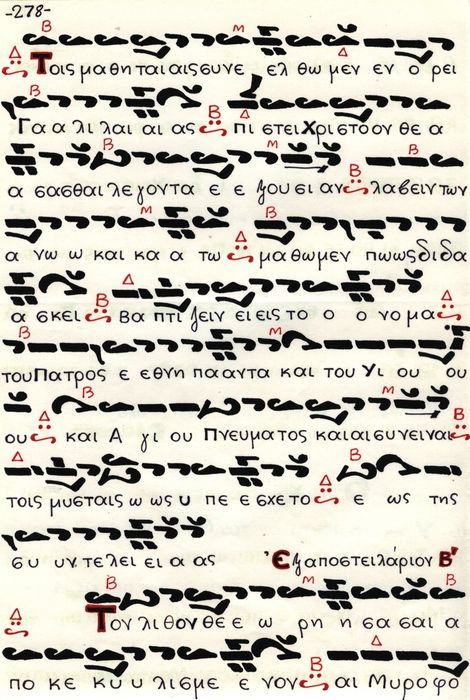 -278-
Τοις μα θη ται αις συν ε ελ θω μεν εν ο ρει
Γα α λι λαι αι ας πι στει Χρι στο ον θε α
α σασθαι λε γοντα ε ε ξου σι αν λα βειν των
α νω ω και κα α τω μα θω μεν πω ως δι δα
α σκει Βα πτι ζειν ει εις το ο ο νο μα
του Πατρος ε εθνη πα αντα και του Υι ου ου
ου και Α γι ου Πνευματος και αι συνειναι
τοις μυσταις ω ως υ πε ε σχετο ε ως της
συ υν τελει ει α ας Ἐξαποστειλάριον Β'
Τον λι θον θε ε ω ρη η σασαι α
πο κε κυ υ λισμε ε νον αι Μυροφο